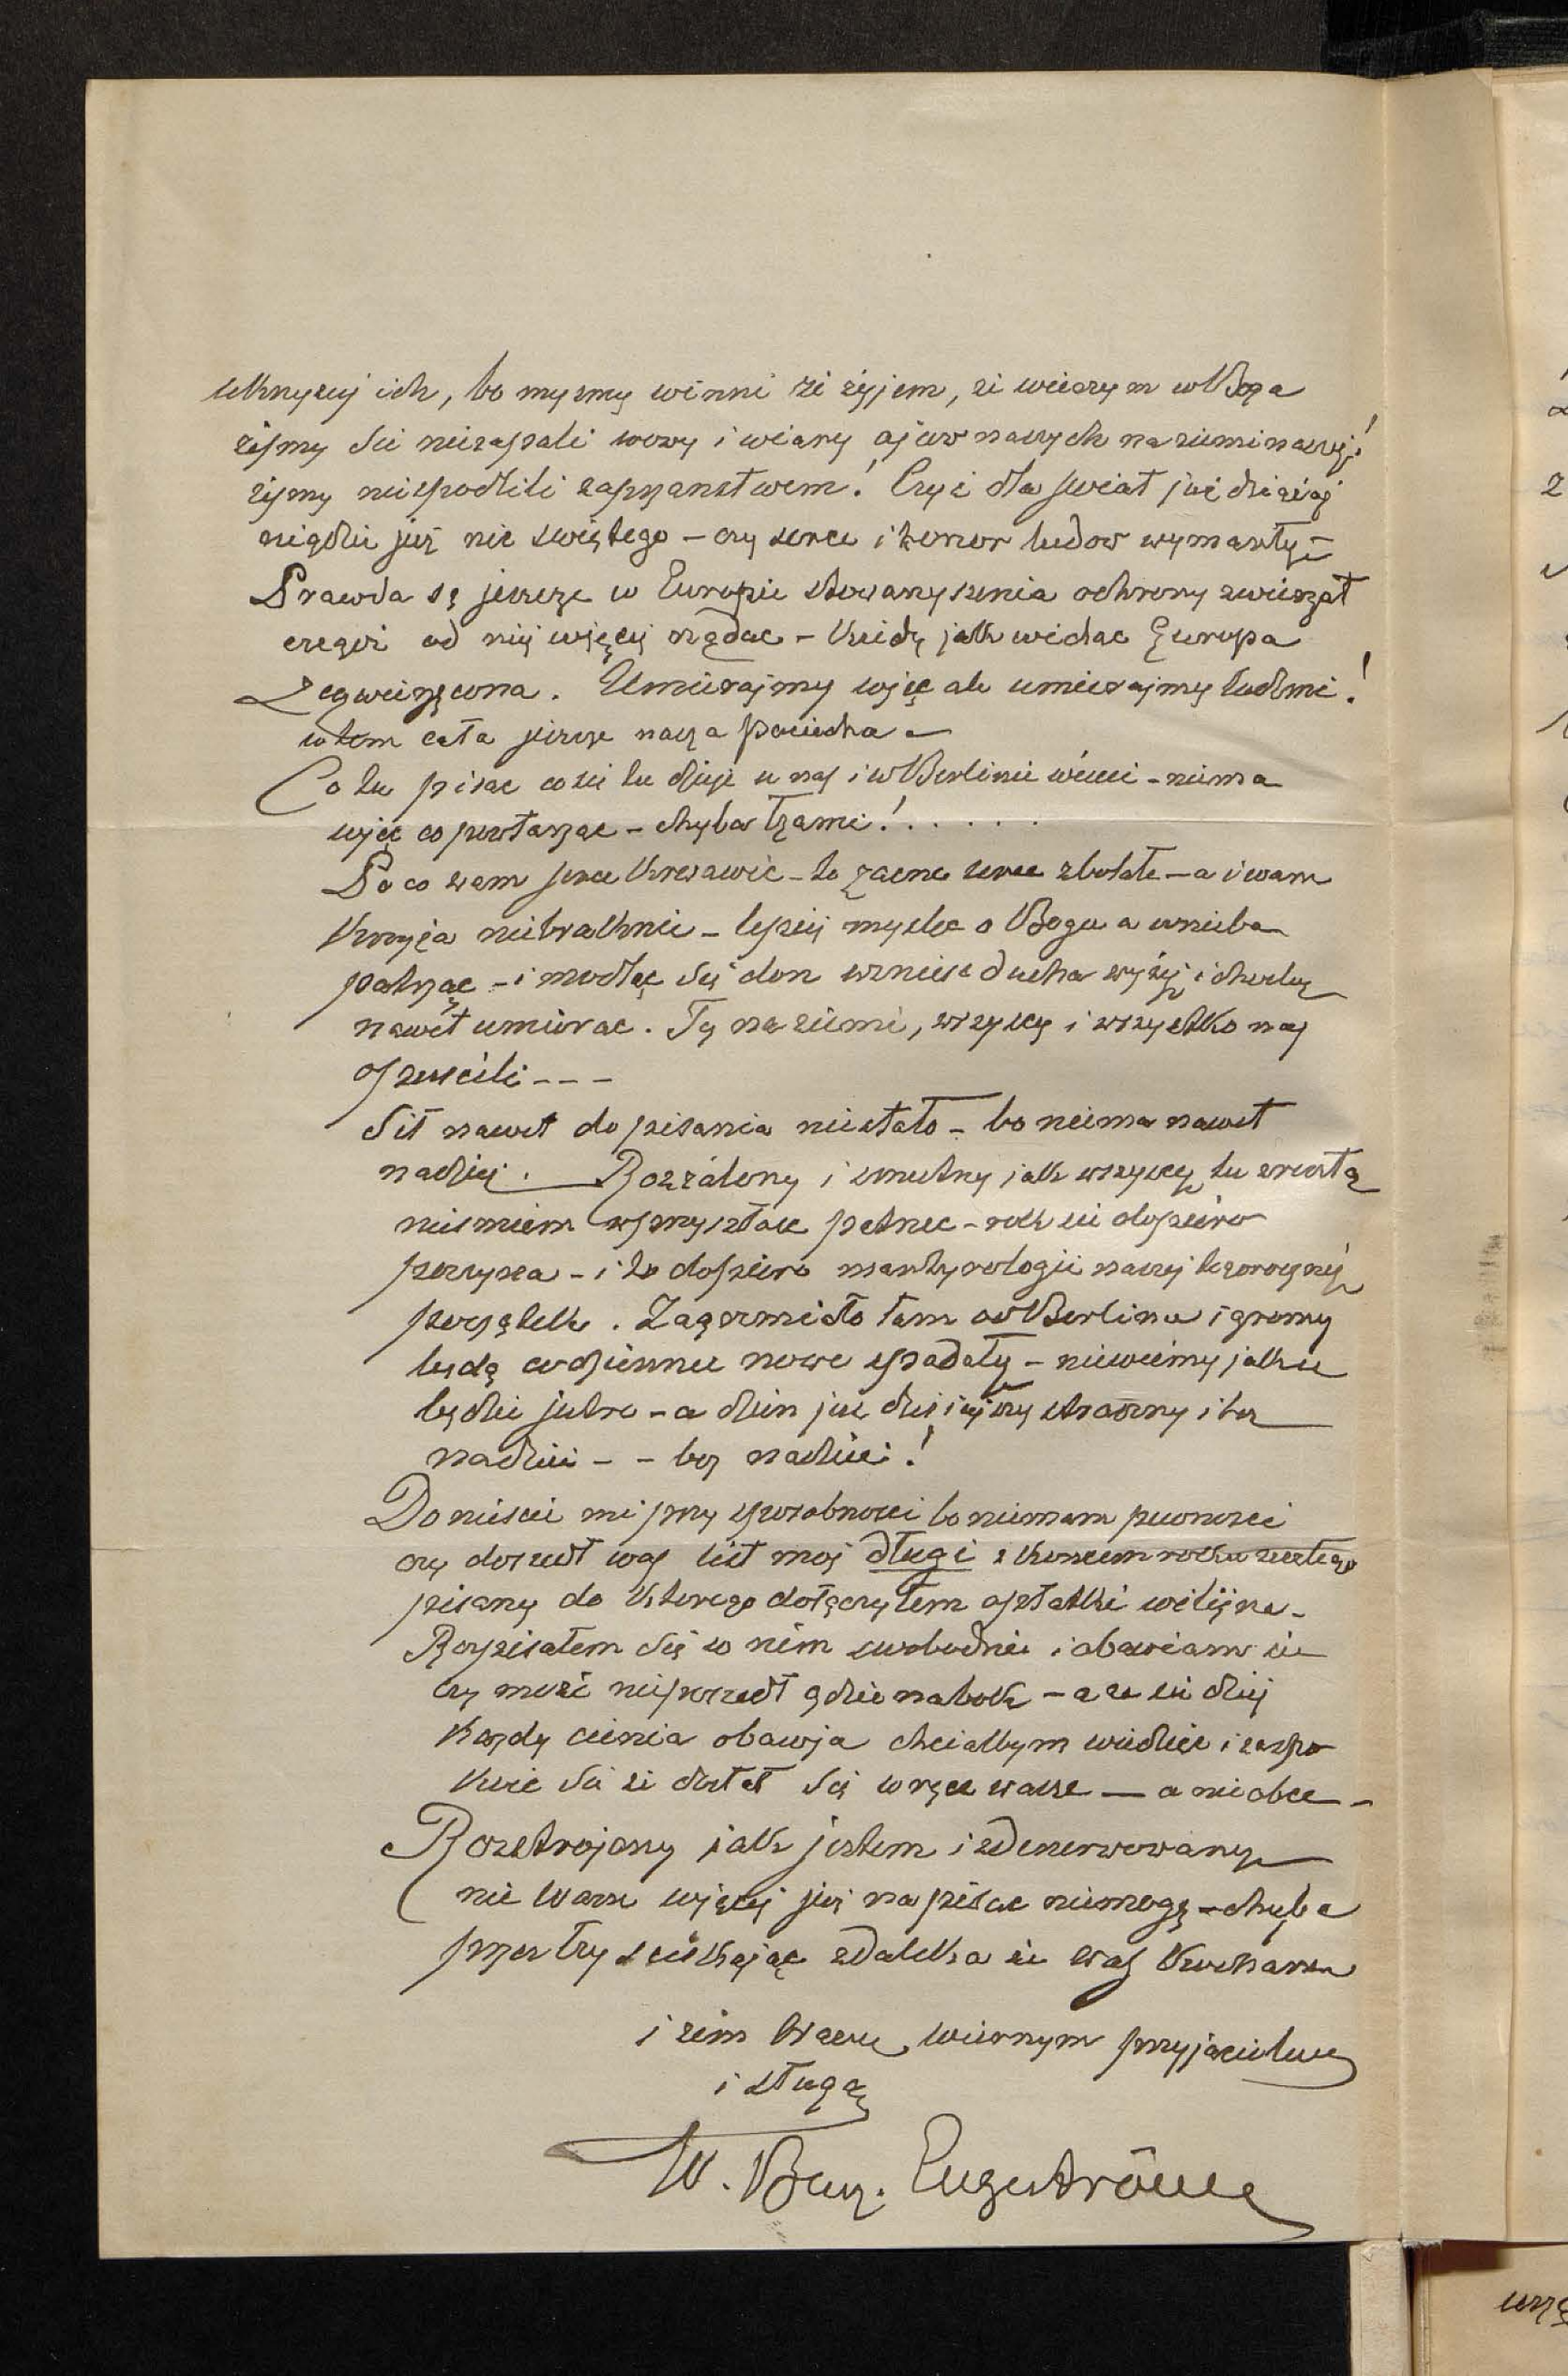 ukrzyżuj ich, bo myśmy winni że żyjem, że wierzym w Boga
żeśmy się niezaparli mowy i wiary ojców naszych na ziemi naszej!
żeśmy niespodlili zaprzaństwem! Czyż dla świat już dzisiaj
nigdzie już nic świętego – czy serce i honor ludow wymarły –
Prawda są jeszcze w Europie stowarzyszenia ochrony zwierząt
czegoż od niej więcej rządac – kiedy jak widac Europa
zezwierzęcona. Umierajmy więc ale umierajmy ludzmi!
w tem cała jeszcze nasza pociecha –
Co tu pisac co się tu dzieje u nas i w Berlinie wiecie – niema
więc co powtarzac – chyba łzami! . . . . .
Po co wam serce krwawic – to zacne serce zbolałe – a i wam
krzyża niebraknie – lepiej myslec o Bogu a w nieba
patrząc – i modląc się don wzniesc ducha wyżej i chocby
nawet umierac. Tę na ziemi, wszyscy i wszystko nas
opuscili – – –
Sił nawet do pisania niestało – bo niema nawet
nadziej. Rozżalony i smutny jak wszyscy tu zresztą
niesmiem w przyszłosc patrzec – rok się dopiero
poczyna – i to dopiero martyrologii naszej tegorocznej
początek. Zagrzmiało tam od Berlina i gromy
będą codziennie nowe spadały – niewiemy jak się
będzie jutro – a dzien już dzisiejszy straszny i bez
nadziei – – bez nadziei!
Doniescie mi przy sposobnosci bo niemam pewnosci
czy doszedł was list moj długi z koncem roku zeszłego
pisany do ktorego dołączyłem opłatki wilijne –
Rozpisałem się w nim swobodnie i obawiam się
czy może nieposzedł gdzie na bok – a ze się dziej
każdy cienia obawia chciałbym wiedziec i uspo
koic się że dostał się w ręce wasze — a nie obce –
Rozstrojony jak jestem i zdenerwowany
nic Wam więcej już napisac niemogę – chyba
przez łzy sciskając zdaleka się was kocham
i żem Waszym wiernym przyjacielem
i sługą
W. Bar. Engeströme